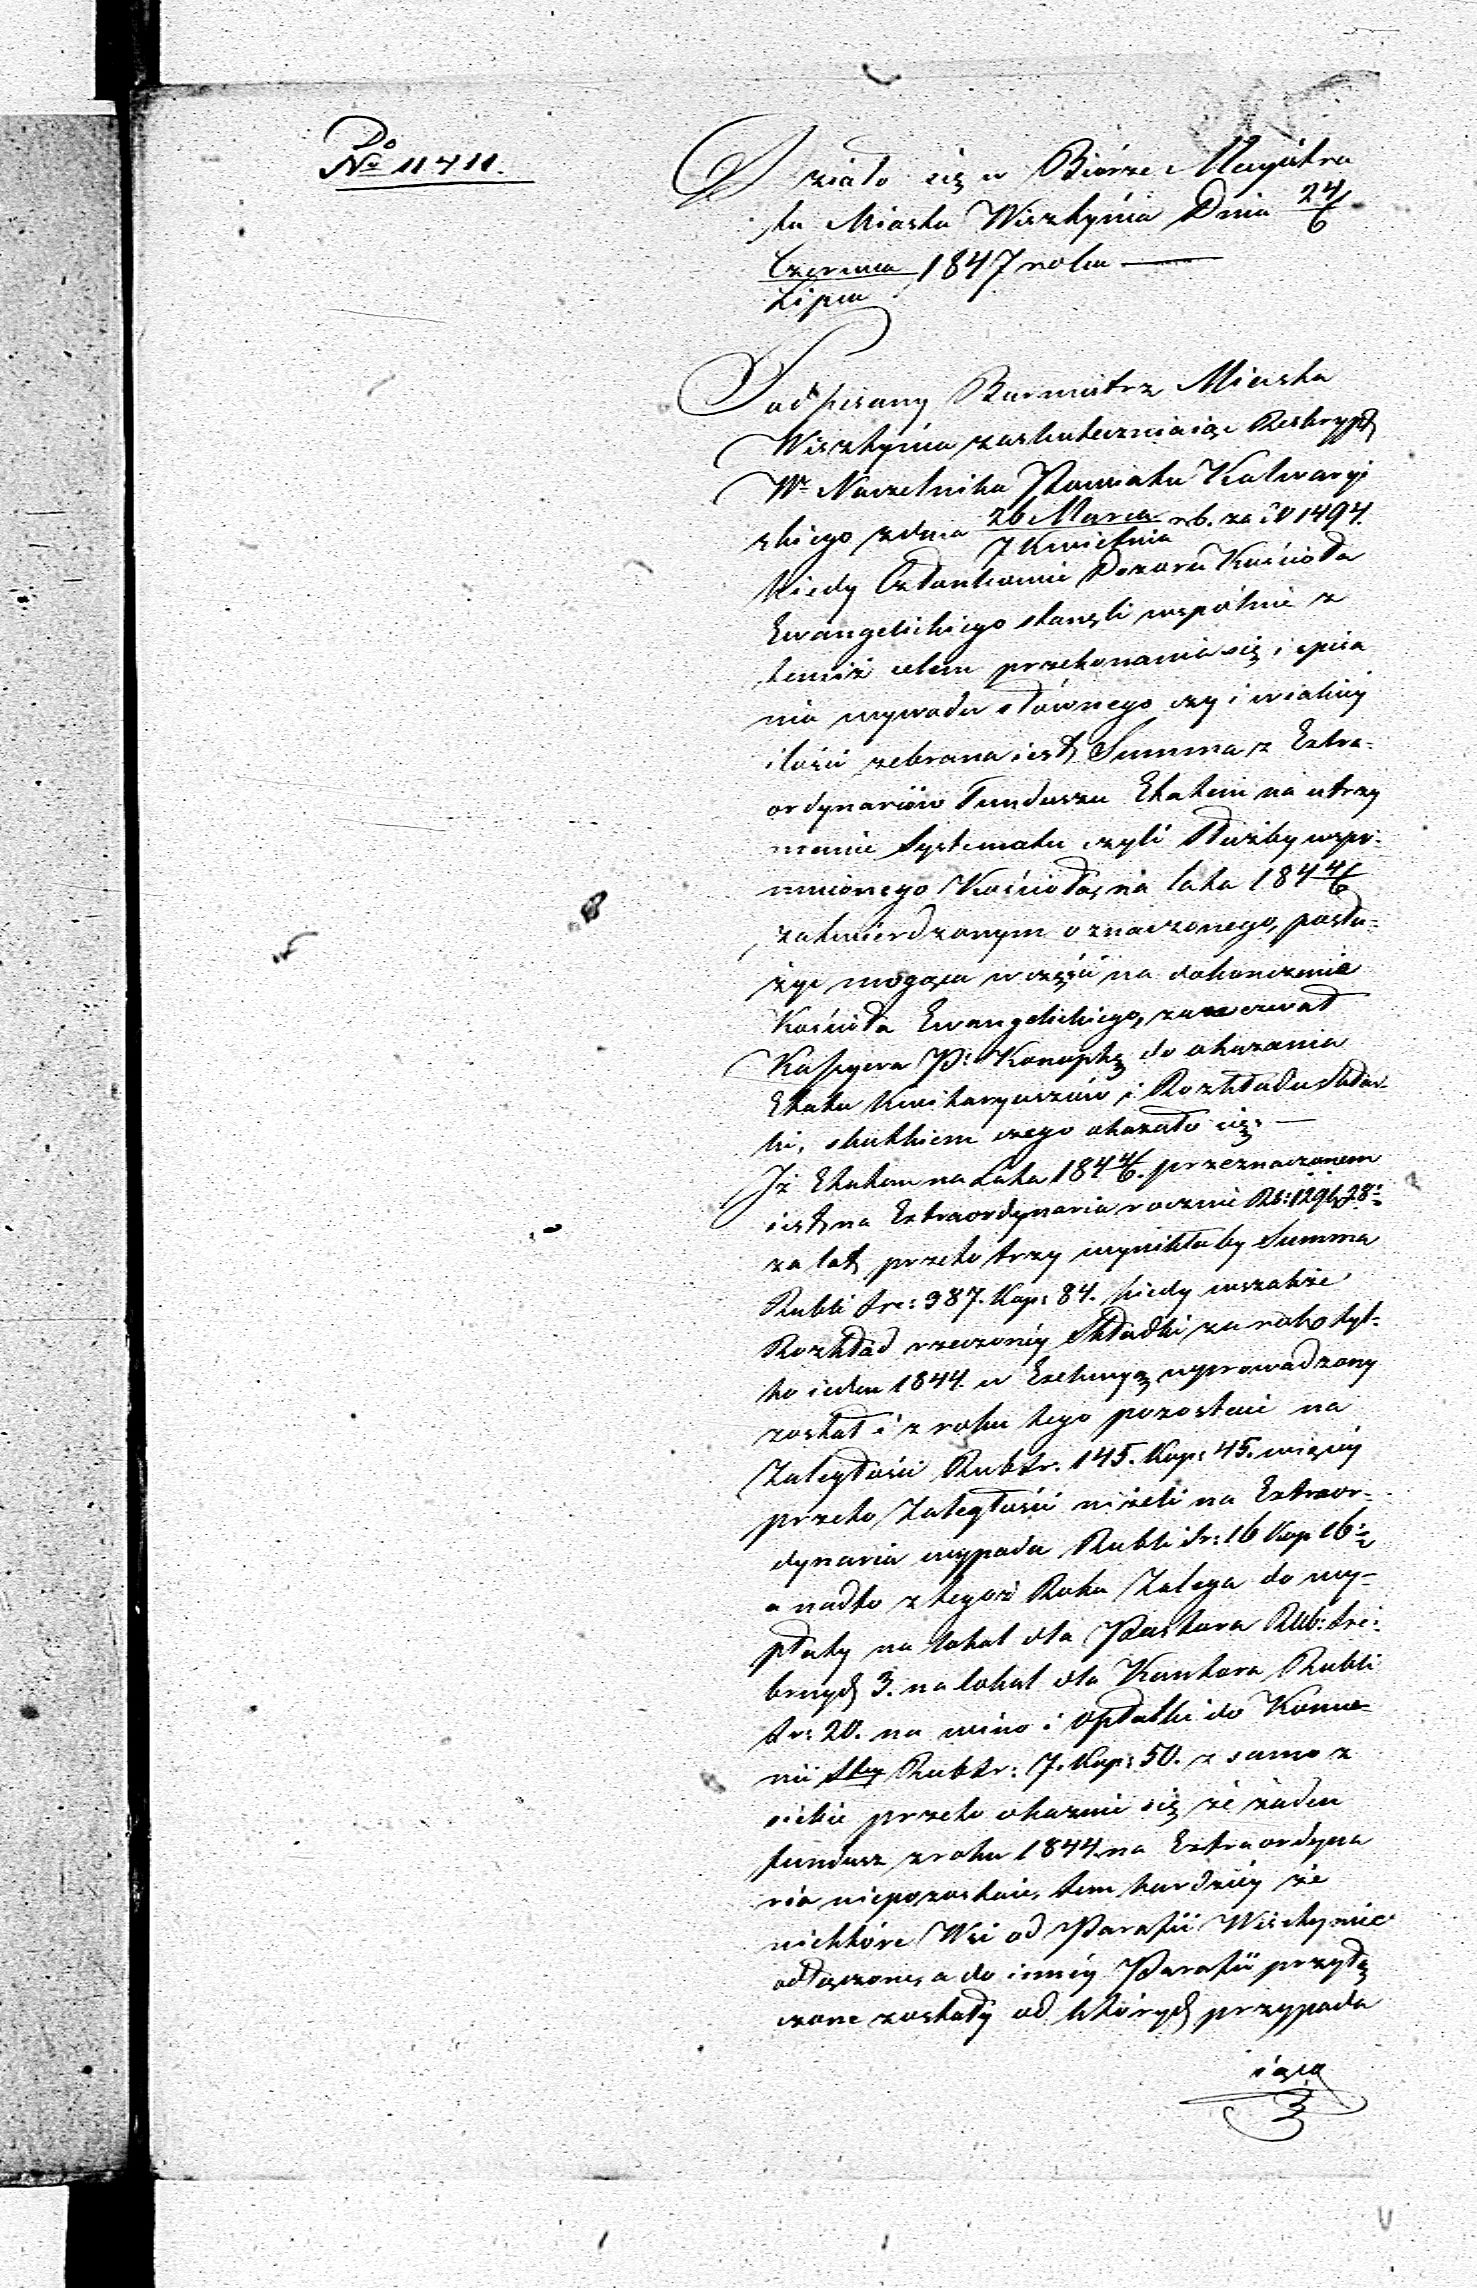 Do
No 11411.
Działo się w Biórze Magistra
tu Miasta Wisztyńca Dnia 24/6
Czerwca/Lipca 1847 roku
Podpisany Burmistrz Miasta
Wisztyńca zaskuteczniając Reskrypt
Wo Naczelnika Powiatu Kalwaryi
skiego z dnia 26 Marca/7 Kwietnia r b. za No 1494.
kiedy Członkowie Dozoru Kościoła
Ewangelickiego stanęli wspólnie z
temiż celem przekonania się i spisa
nia wywodu słównego czy i w iakiey
ilości zebrana iest Summa z Extra-
ordynarióio Funduszu Etatem na utrzy
manie Systematu czyli Służby wspo-
mnionego Kościoła, na lata 184 4/6
zatwierdzonym oznaczonego, posłu-
żyć mogąca w części na dokończenie
Kościoła Ewangelickiego, zawezwał
Kassyera P. Konopkę do okazania
Etatu Kwitaryuszów i Rozkładu Skład-
ki, skutkiem czego okazało się: —
Iż Etatem na Lata 184 4/6. przeznaczonem
iest na Extraordynaria rocznie Rs: 129 k 28
za lat przeto trzy wynikłaby Summa
Rubli sre: 387. Kop: 84. kiedy wszakże
Rozkład rzeczonéy Składki za rok tyl-
ko ieden 1844. w Exekucyą wyprowadzony
został i z roku tego pozostaie na
Zaległości Rub sr. 145. Kop: 45. więcéy
przeto Zaległości niżeli na Extraor-
dynaria wypada Rubli sr: 16 Kop 16
a nadto z tegoż Roku Zalega do wy-
płaty na lokal dla Pastora Rub: sre:
brnych 3. na lokal dla Kantora Rubli
sr: 20. na wino i opłatki do Komu-
nii Stey Rub sr: 7. Kop: 50. z samo z
siebie przeto okazuie się że żaden
fundusz z roku 1844. na Extraordyna
ria niepozostaie, tem bardziéy że
niektóre Wsi od Parafii Wisztyniec
odłączone, a do innéy Parafii przyłą
czone zostały od których przypada
iąca